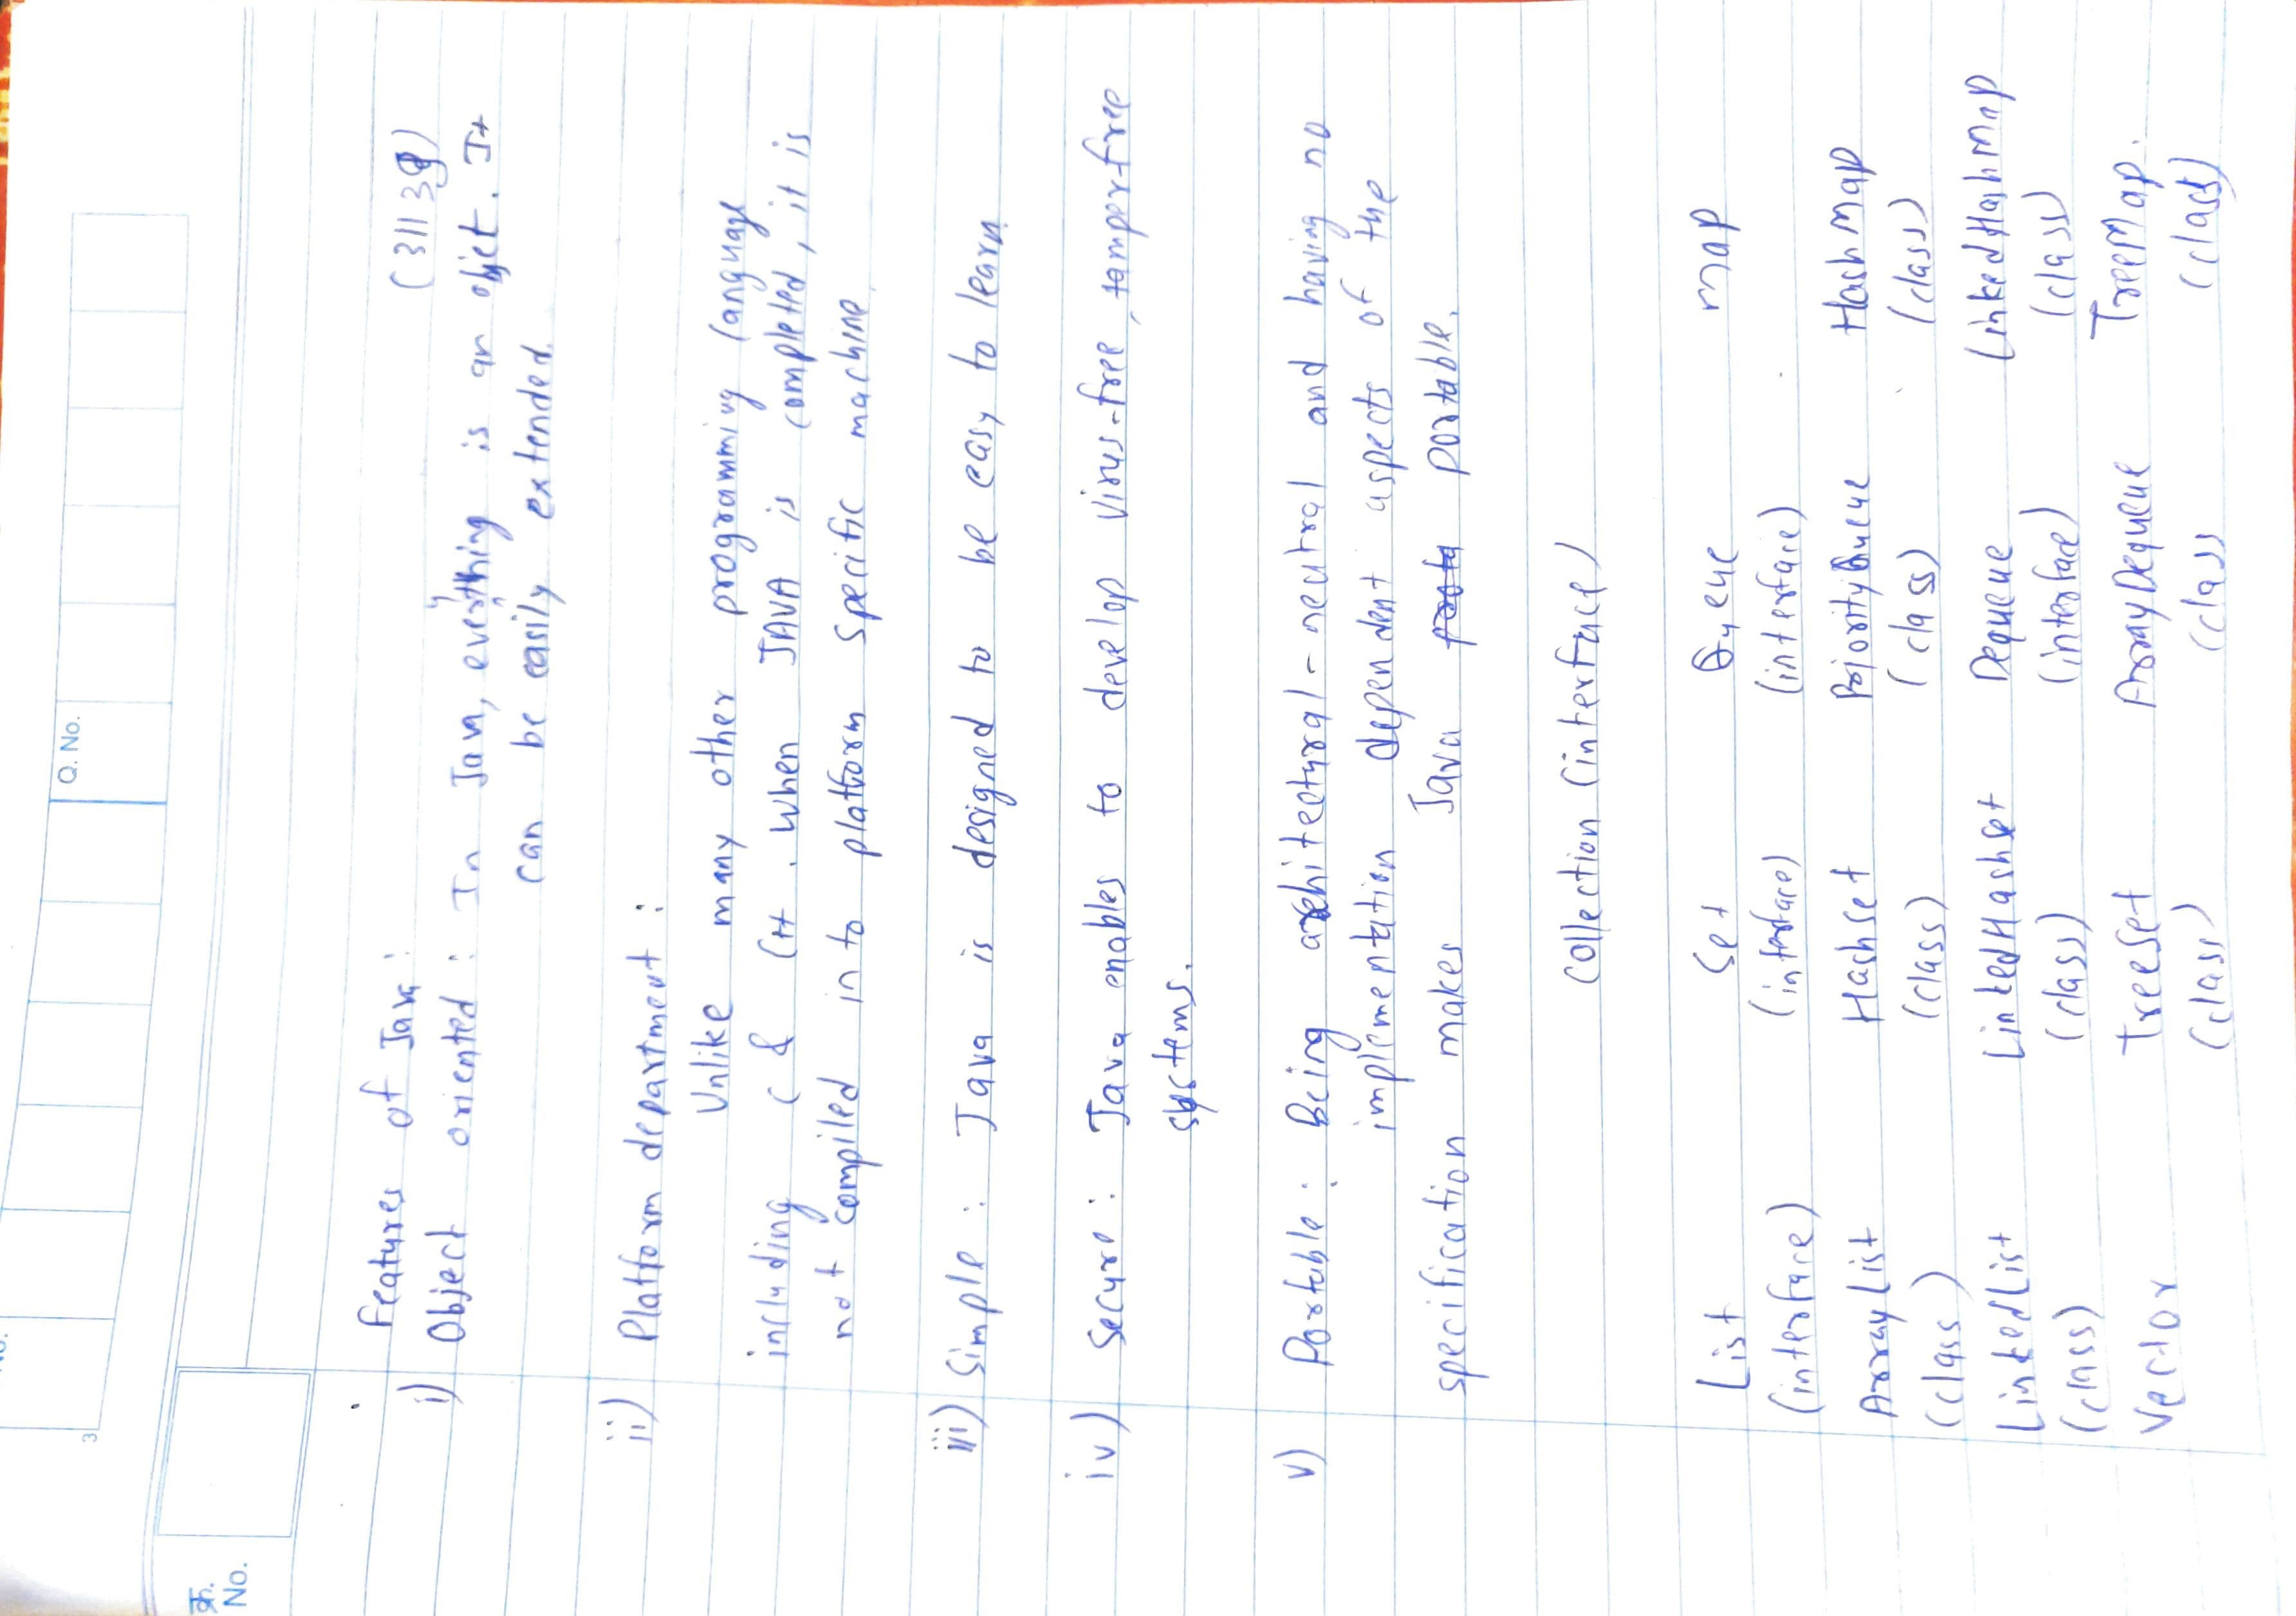 3
Q. No.
क्र.
No.
Features of Java : (31139)
i) Object oriented : In Java, everything is an objet. It
can be easily extended.
ii) Platform department :
Unlike many other programming language
including C & C++. When JAVA is completed, it is
not compiled in to platform specific machine.
iii) Simple : Java is designed to be easy to learn.
iv) Secure : Java enables to develop Virus-free, tamperfree
systems.
v) Portable : Being architectural-neutral and having no
implementation dependent aspects of the
specification makes Java portable.
Collection (interface)
List Set Queue map
(interface) (interface) (interface)
ArrayList Hashset PriorityQueue Hashmap
(class) (class) (class) (class)
LinkedList LinkedHashset Dequeue LinkedHashmap
(class) (class) (interface) (class)
Vector TreeSet ArrayDequeue TreeMap.
(class) (class (class)